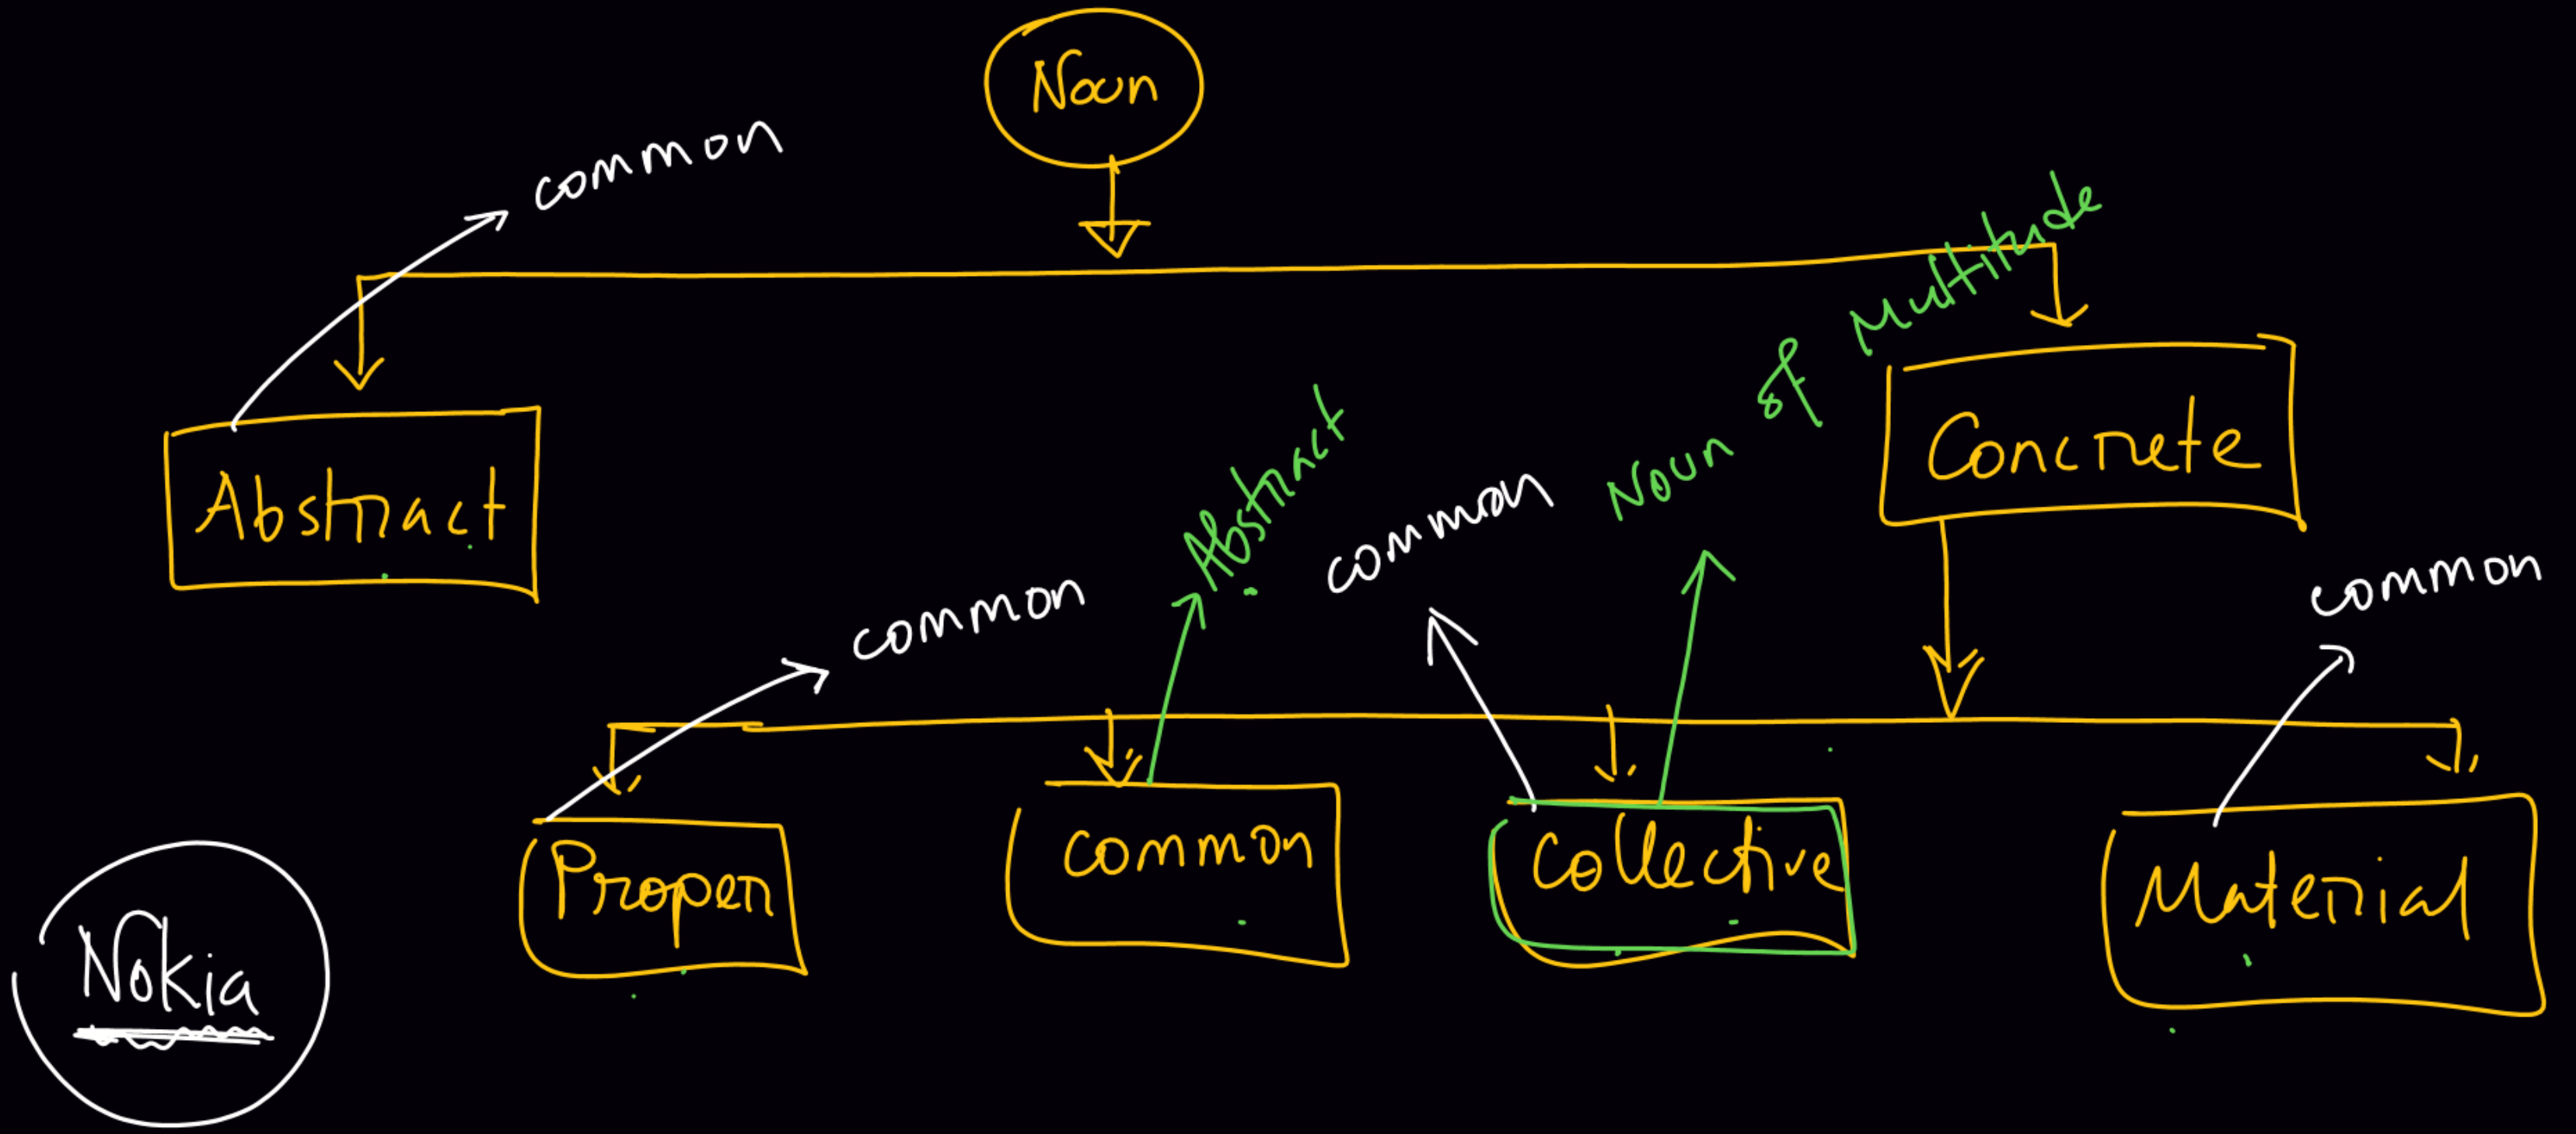 Noun
common
Abstract
Concrete
Noun of Multitude
Abstract
common
common
common
Proper
common
Collective
Material
Nokia